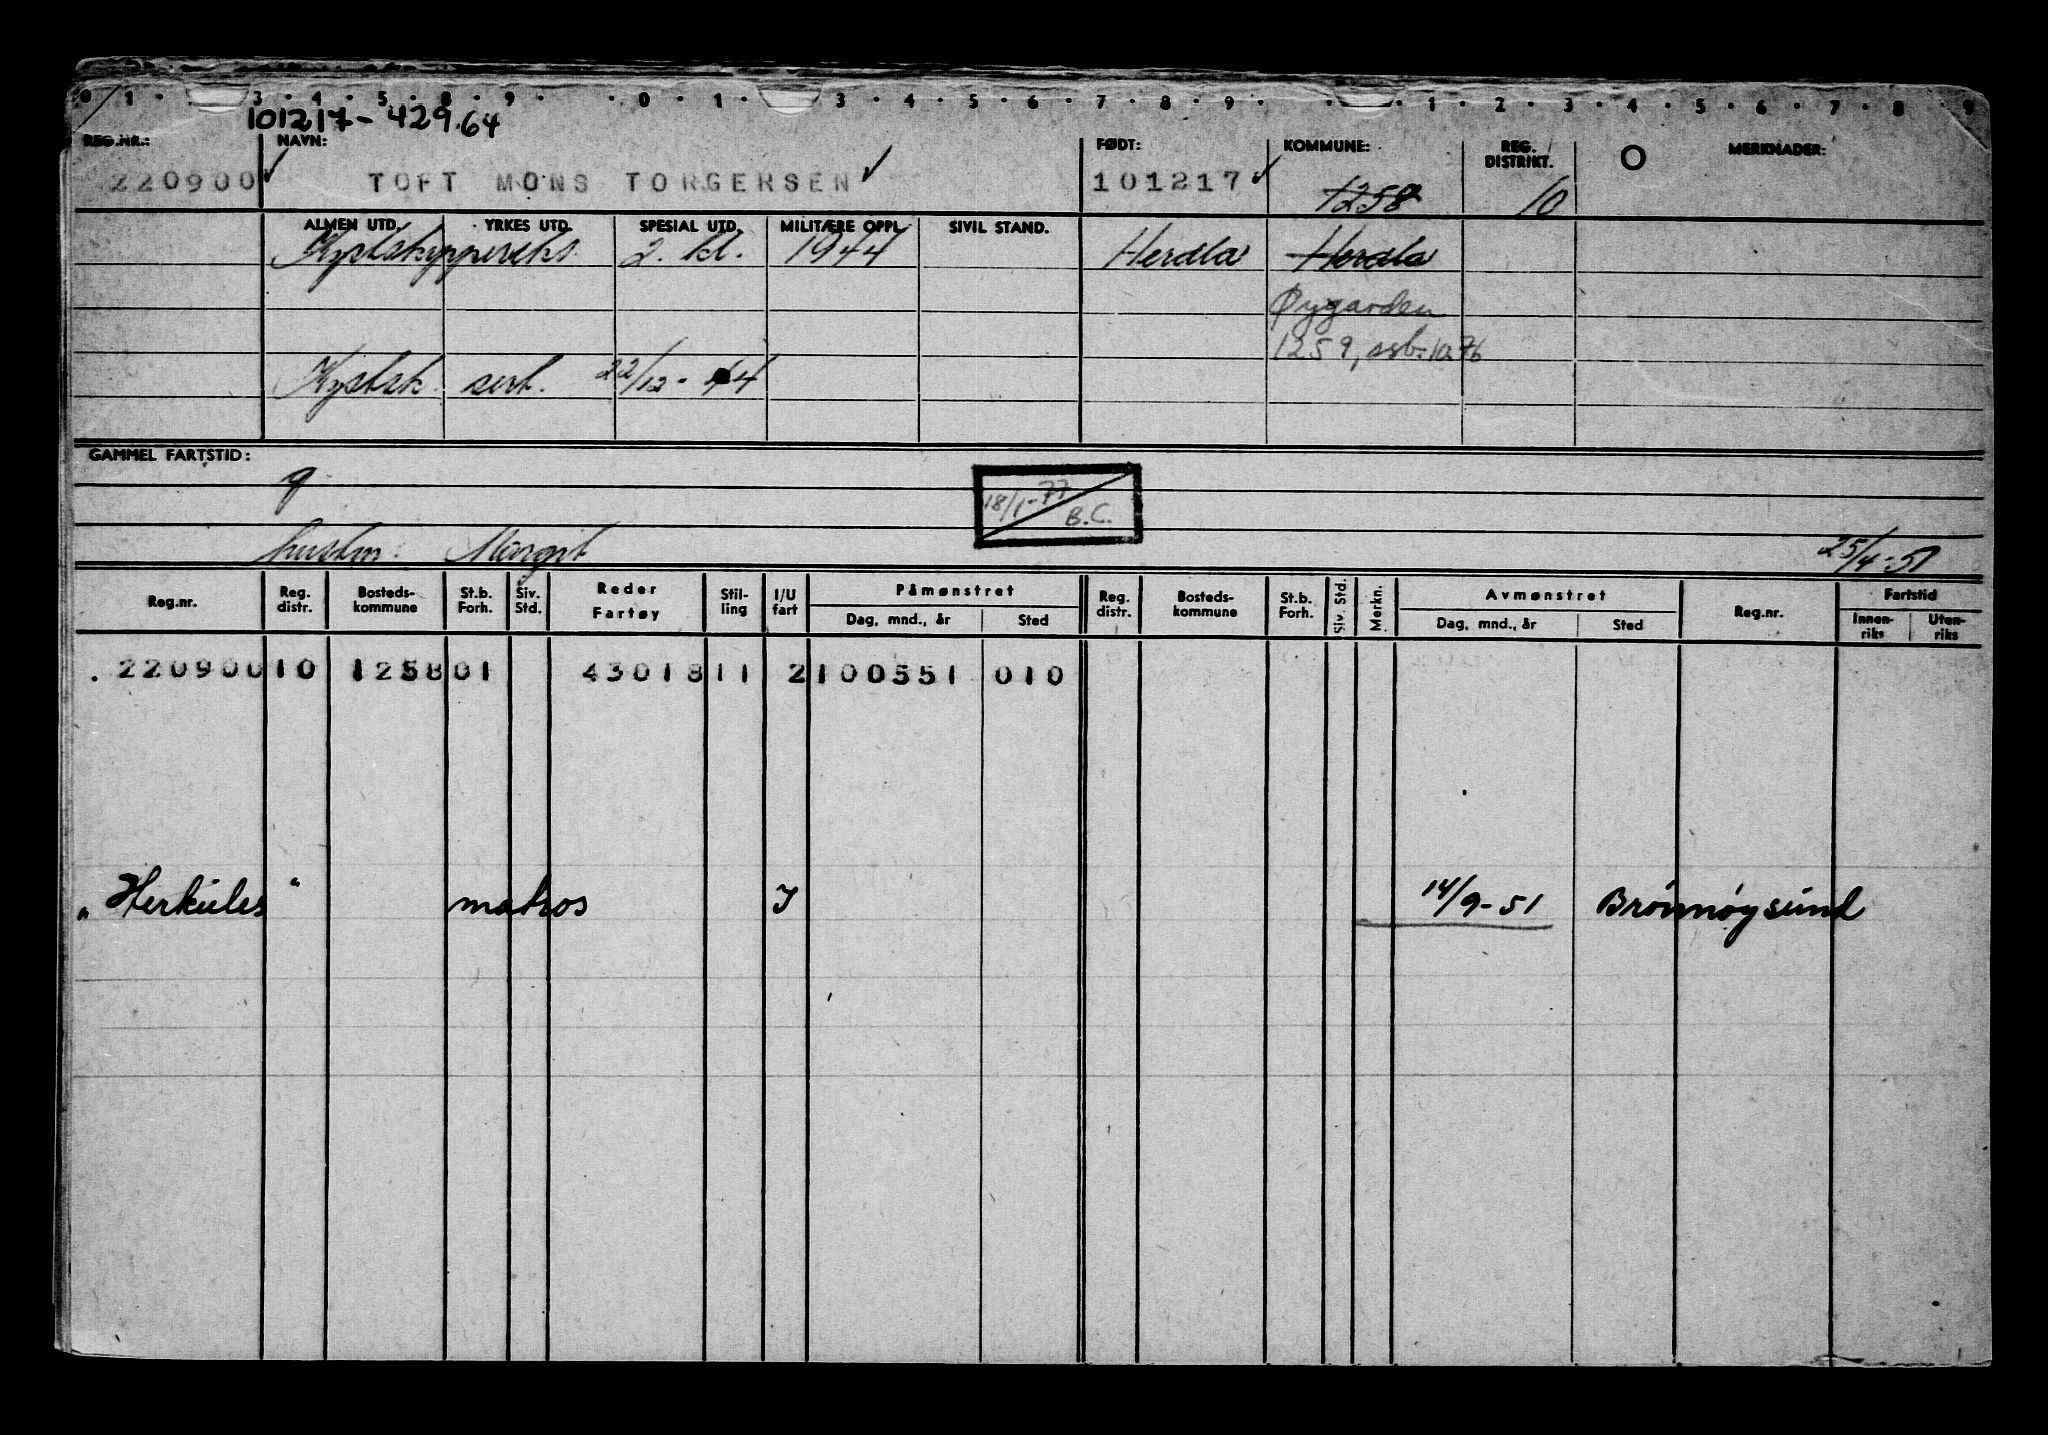 0 1 3 4 5 8 9 0 1 3 4 5 6 7 8 9 1 2 3 4 5 6 7 8 9
101217-42964
REG.NR.: NAVN: FØDT: KOMMUNE: REG. DISTRIKT. O MERKNADER:
220900 ✓ TOFT MONS TORGERSEN ✓ 101217 ✓ 1258 10
ALMEN UTD. YRKES UTD. SPESIAL UTD. MILITÆRE OPPL. SIVIL STAND.
Kystskippereks. 2. kl. 1944 Herdla Herdla
Øygarden
1259, osb. 10.76
Kystsk. sert. 22/12-44
GAMMEL FARTSTID:
18/1-77
B.C.
hustru: Margit 25/4-51
Reg.nr. Reg. distr. Bosteds-kommune St.b. Forh. Siv. Std. Reder Fartøy Stil-ling I/U fart Påmønstret Dag, mnd., år Sted Reg. distr. Bosteds-kommune St.b. Forh. Siv. Std. Merkn. Avmønstret Dag, mnd., år Sted Reg.nr. Fartstid Innen-riks Uten-riks
. 220900 10 1258 01 43018 11 2 100551 010
„Herkules“ matros I 14/9-51 Brönnøysund